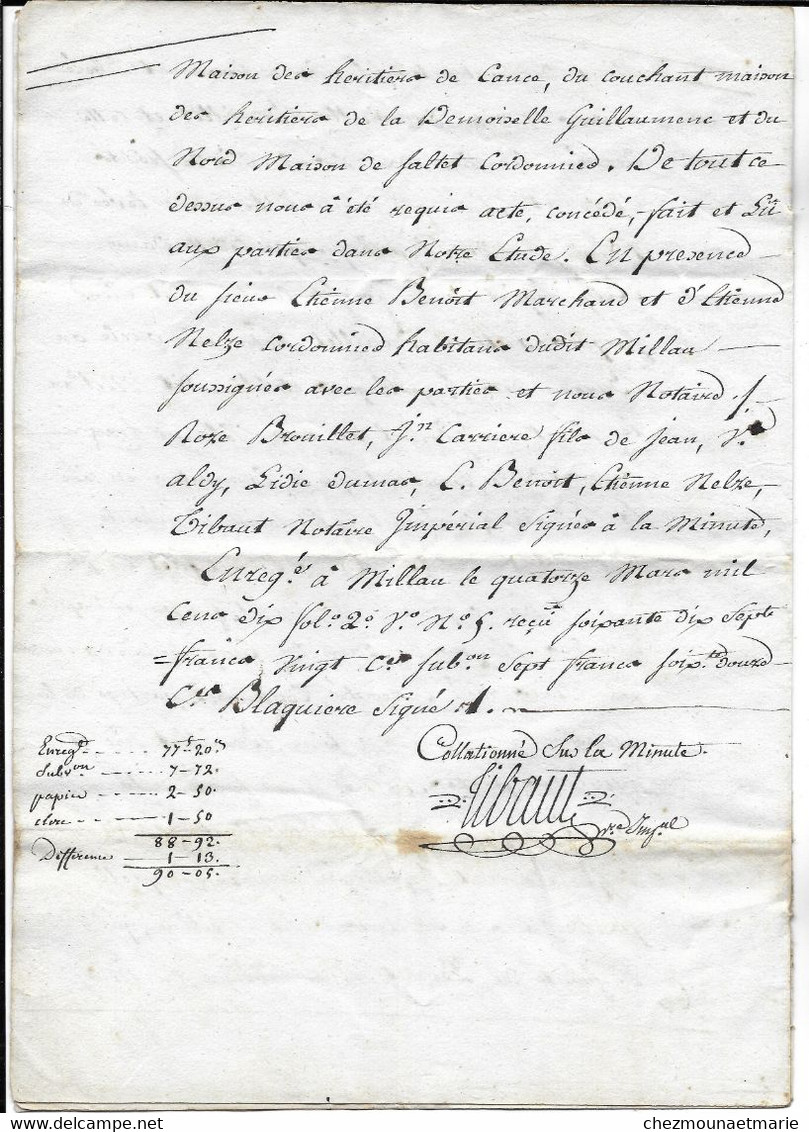 Maison des heritiers de Cance, du couchant maison
des heritiers de la Demoiselle Guillaumenc et du
Nord Maison de saltet Cordonnier. De tout ce
dessus nous à été requis acte, concédé, fait et Lû
aux parties dans Notre Etude. En presence
du sieur Etiénne Benoit Marchand et d'Etiénne
Nelze Cordonnier habitans dudit Millau
soussignés avec les parties et nous Notaire /.
Roze Brouillet, Jn. Carriere fils de Jean,
aldy, Lidie dumas, E. Benoit, Etiénne Nelze,
Tibaut Notaire Impérial Signés à la Minute,
Enreg.é à Millau le quatorze Mars mil
cens dix fol.o 2.o V.o N.o 5. reçu soixante dix Sept
francs Vingt C.es Sub.on Sept francs soix.te douze
C.es Blaquiere Signé /.
Enreg.t 77f - 20c
Subv.on 7 - 72
papier 2 - 50
clerc 1 - 50
88 - 92
Difference 1 - 13
90 - 05
Collationné Sur la Minute.
Tibaut
N.re Imp.al
chezmounaetmarie